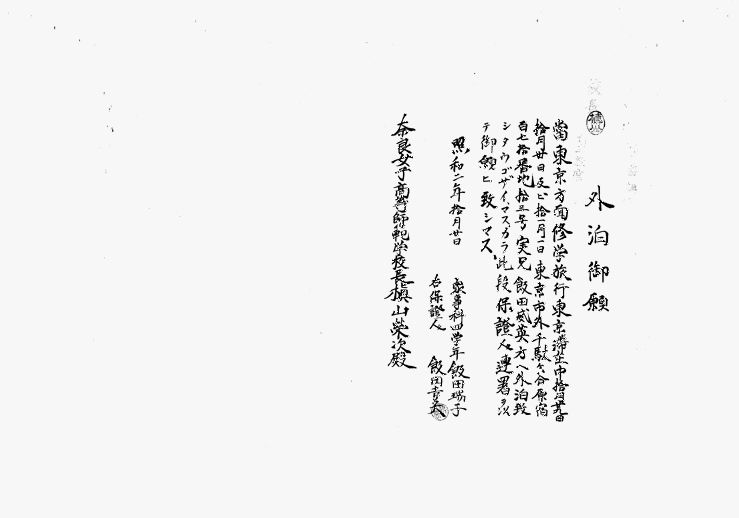 外泊御願
當東京方面修学旅行東京滞在中拾月廿九日
拾月卅日及ビ拾一月一日東京市外千駄ヶ谷原宿
百七拾番地拾三号実兄飯田威英方ヘ外泊致
シタウゴザイマスカラ此段保證人連署ヲ以
テ御願ヒ致シマス、
昭和二年拾月廿日
家事科四学年飯田瑞子
右保證人 飯田
奈良女子高等師範学校長槇山榮次殿